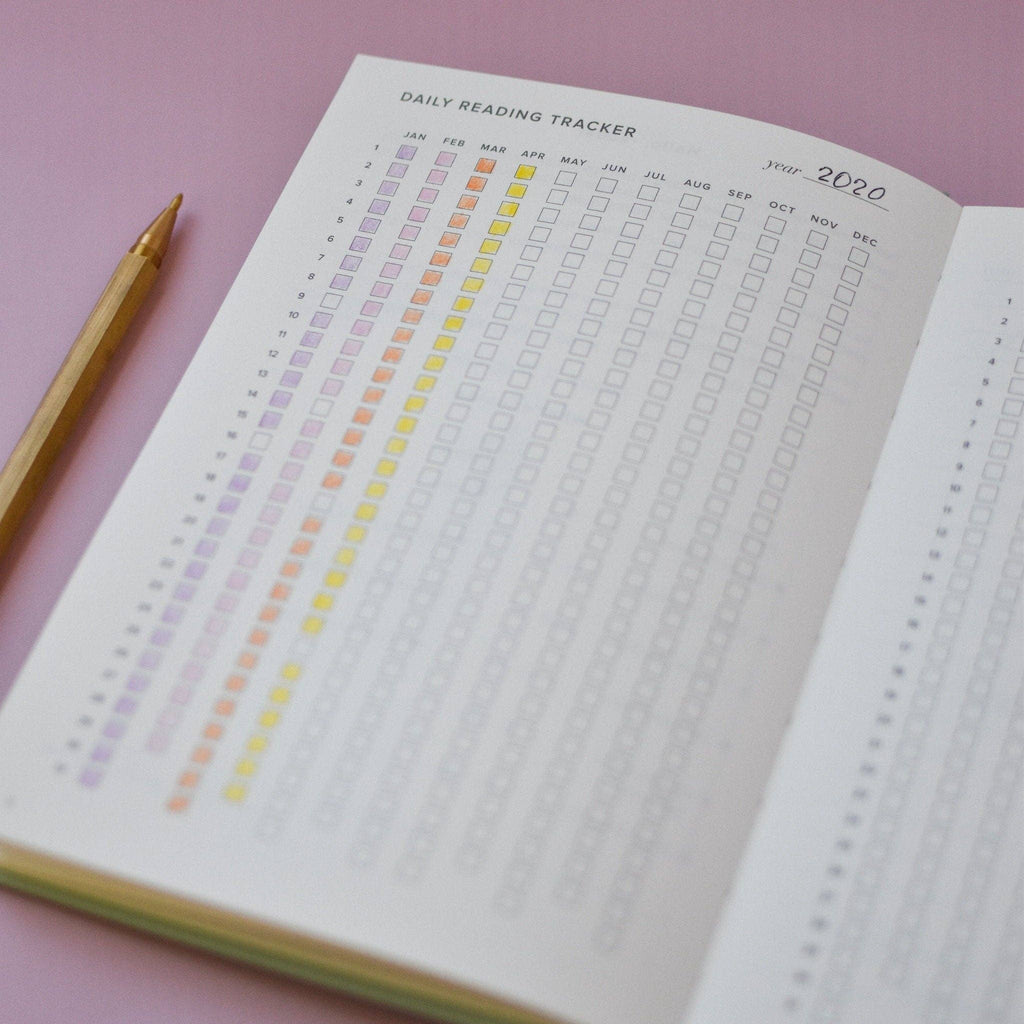 DAILY READING TRACKER
year 2020
JAN FEB MAR APR MAY JUN JUL AUG SEP OCT NOV DEC
1
2
3
4
5
6
7
8
9
10
11
12
13
14
15
16
1
2
3
4
5
6
7
8
9
10
11
12
13